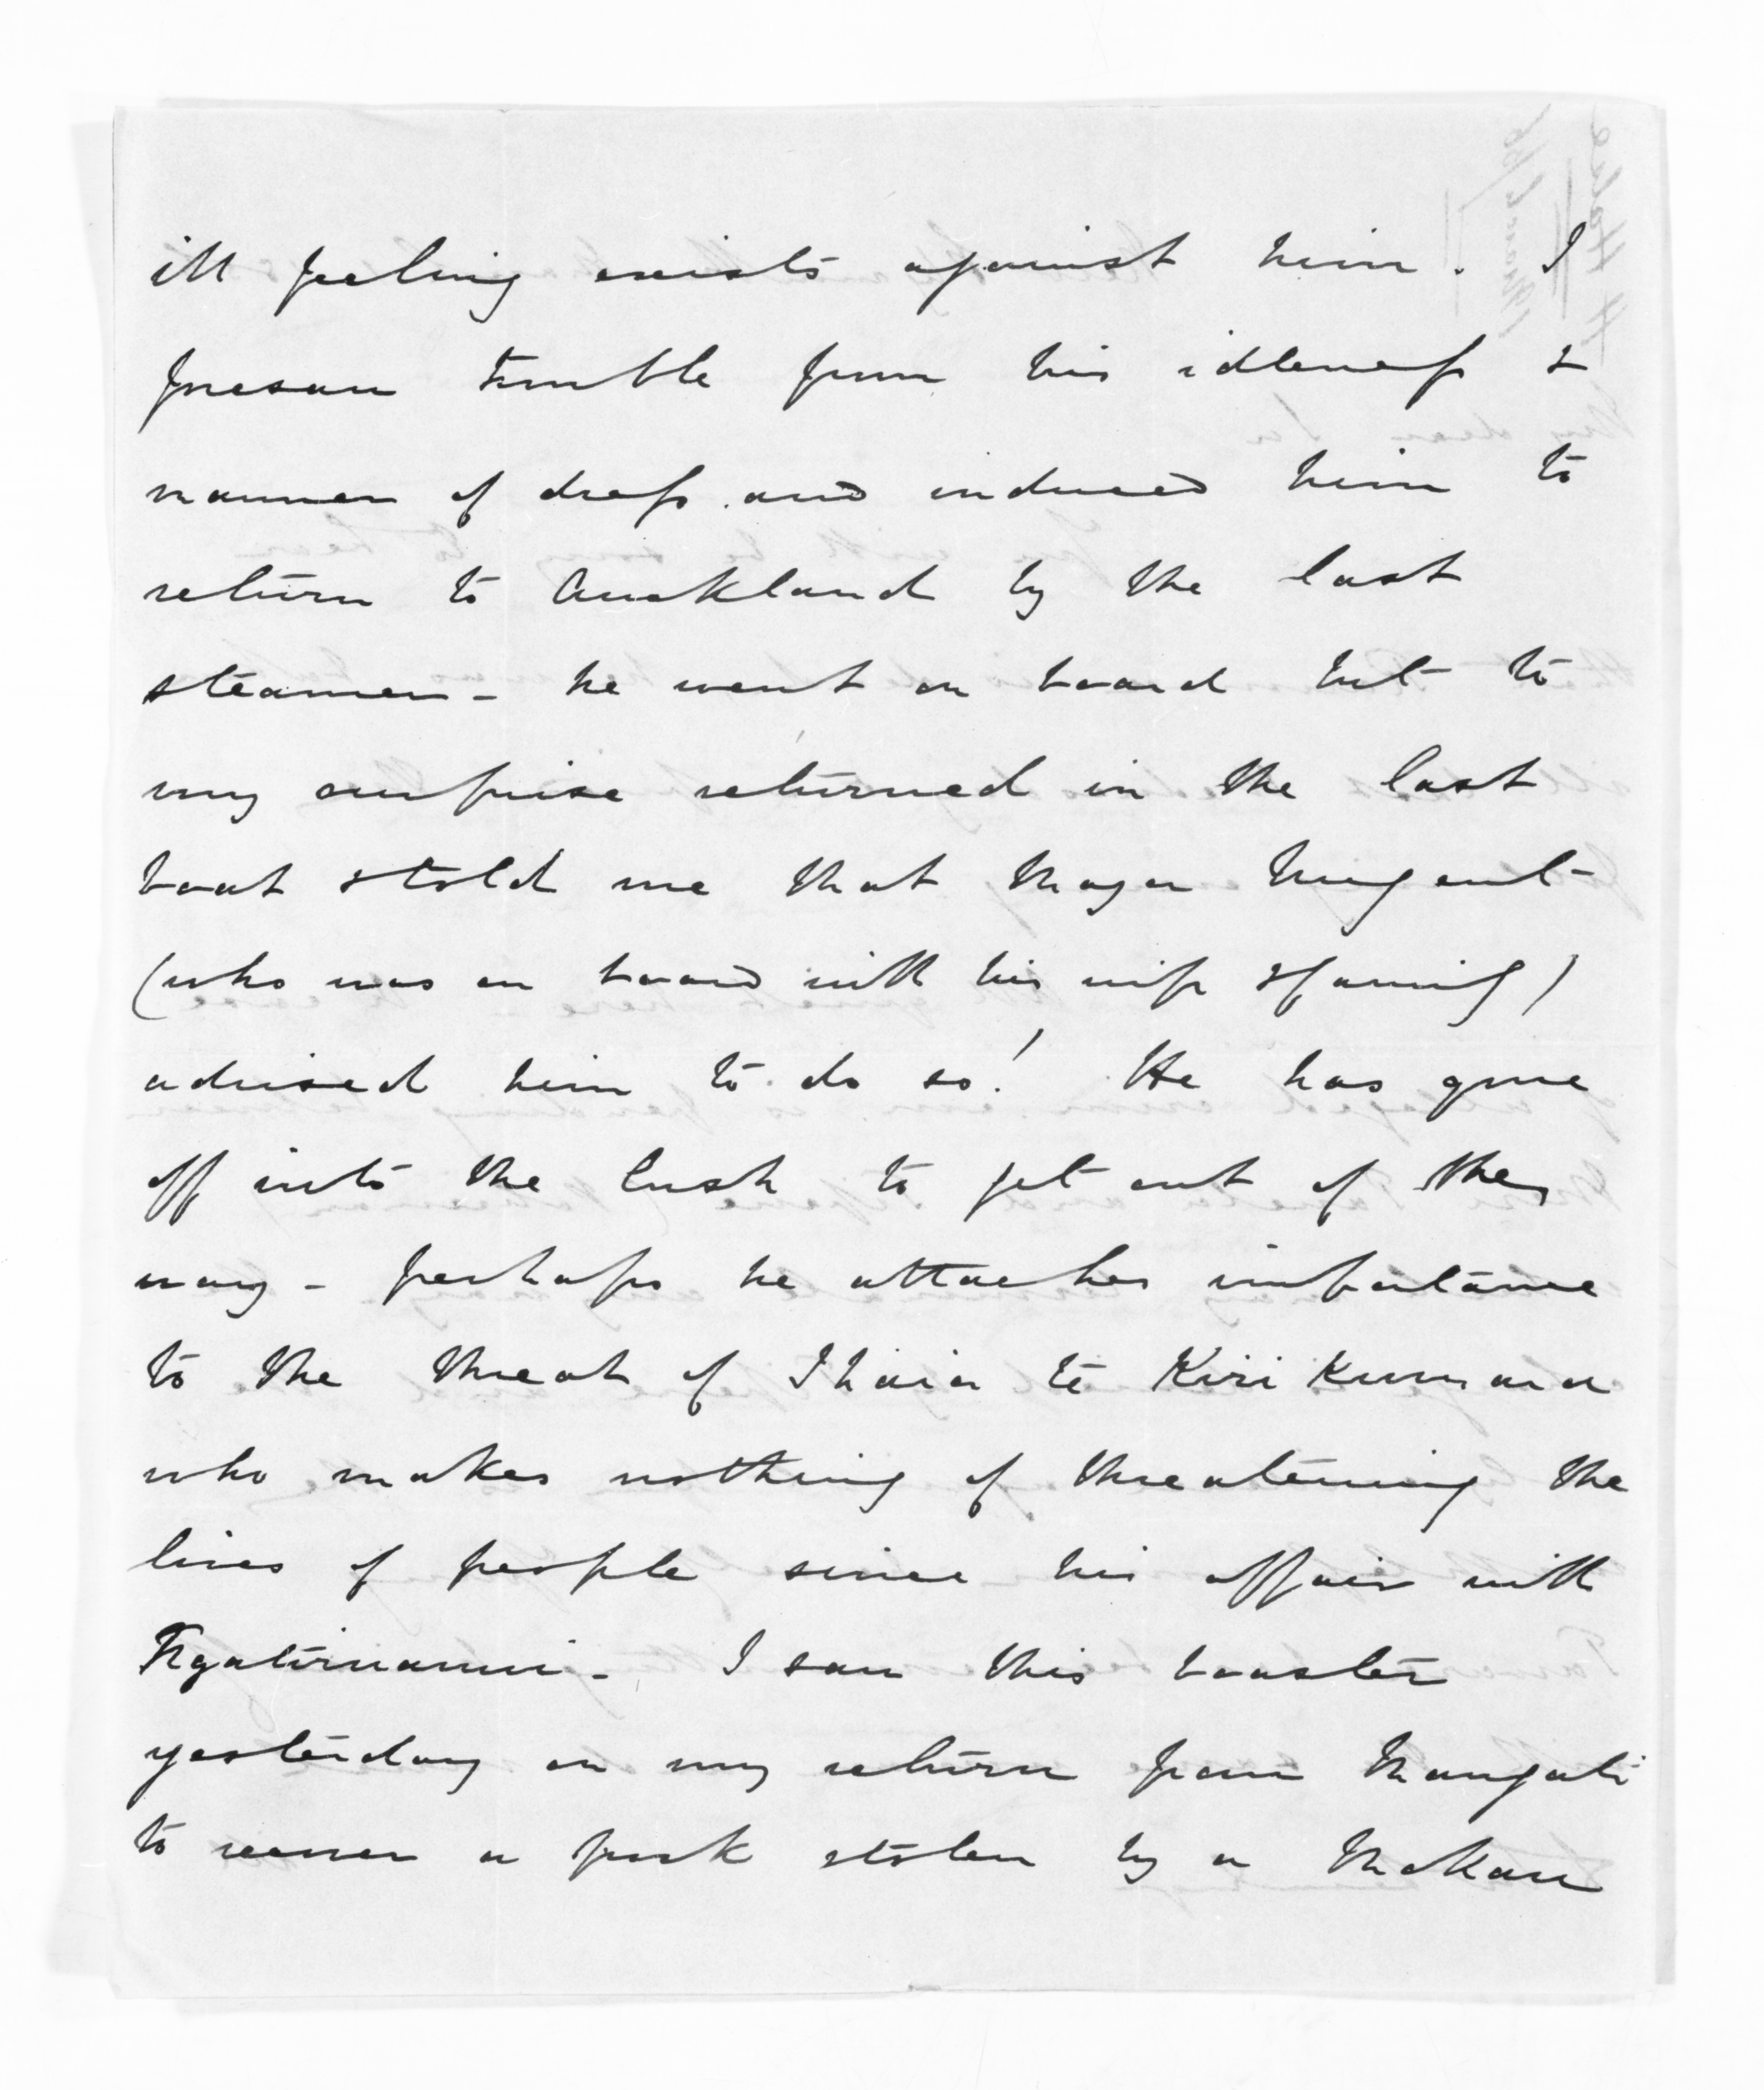 ill feeling exists against him. I
foresaw trouble from his idleness &
manner of dress and induced him to
return to Auckland by the last
steamer - he went on board but to
my surprise returned in the last
boat & told me that Major Nugent
(who was on board with his wife & family)
advised him to do so! He has gone
off into the bush to get out of the
way - perhaps he attaches importance
to the threat of Ihaia te Kiri Kumara
who makes nothing of threatening the
lives of people since his affair with
Ngatiruanui - I saw this boaster
yesterday on my return from Mangati
to recover a stolen by a